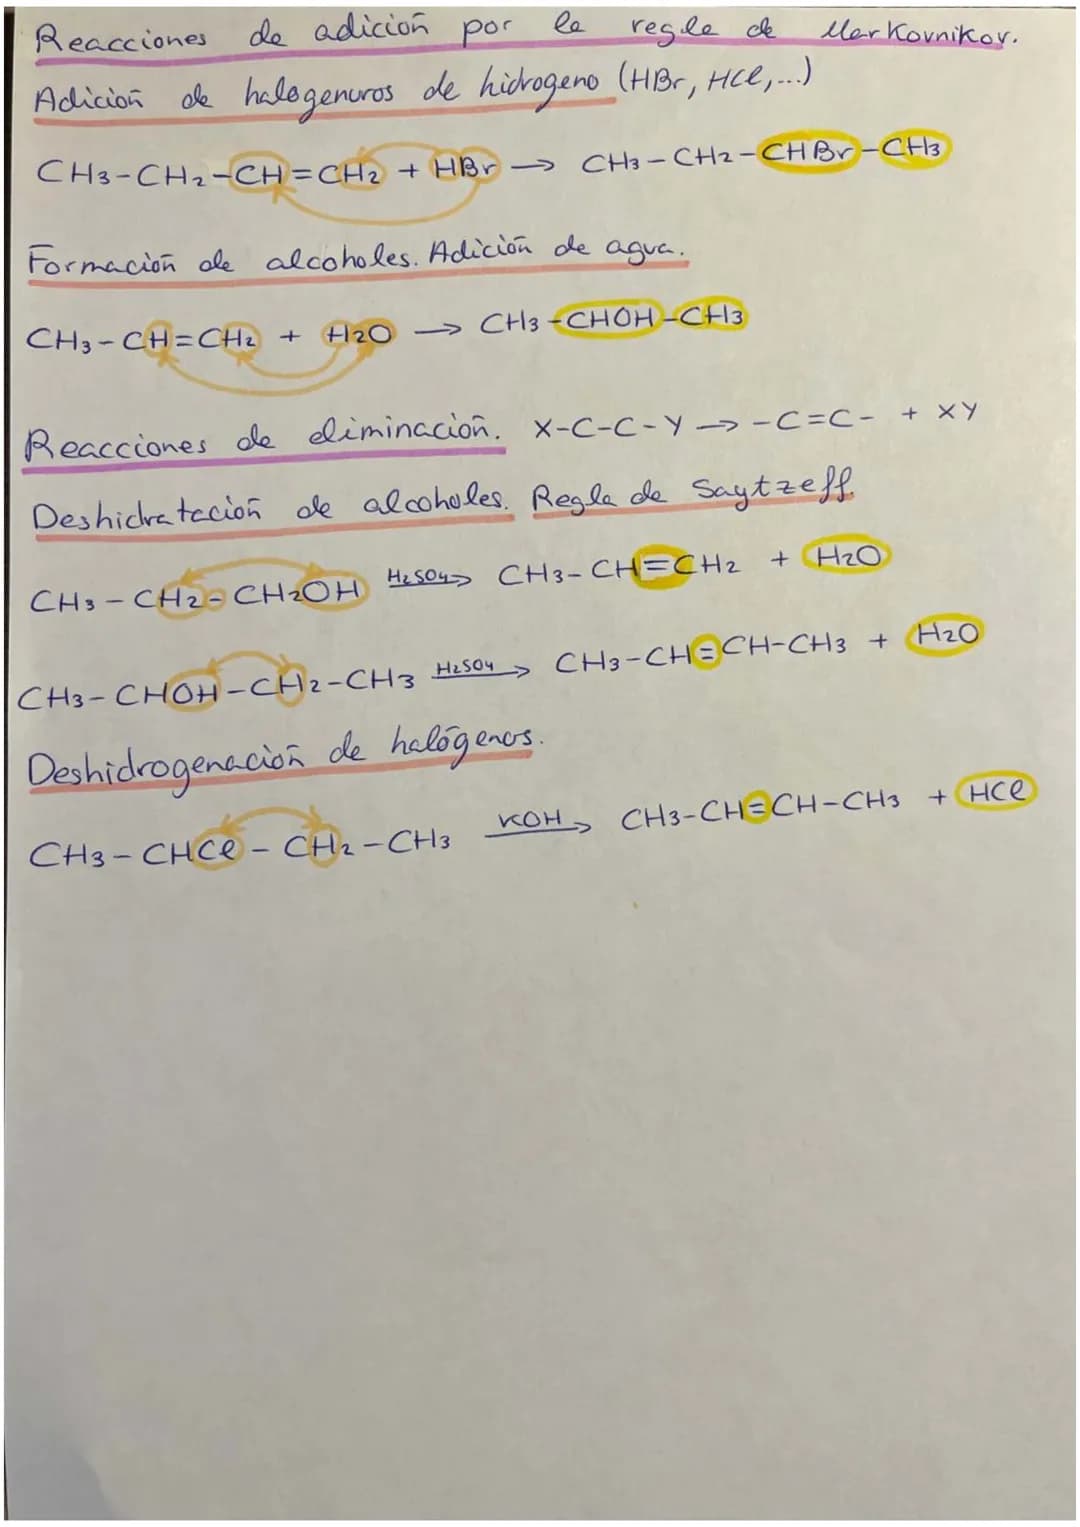 Reacciones de adición por la regla de Markovnikov.
Adición de halogenuros de hidrogeno (HBr, HCl,...)
CH3-CH2-CH=CH2 + HBr → CH3-CH2-CHBr-CH3
Formación de alcoholes. Adición de agua.
CH3-CH=CH2 + H2O → CH3-CHOH-CH3
Reaccciones de eliminación. X-C-C-Y → -C=C- + XY
Deshidratación de alcoholes. Regla de Saytzeff.
CH3-CH2-CH2OH H2SO4→ CH3-CH=CH2 + H2O
CH3-CHOH-CH2-CH3 H2SO4→ CH3-CH=CH-CH3 + H2O
Deshidrogenación de halógenos.
CH3-CHCl-CH2-CH3 KOH→ CH3-CH=CH-CH3 + HCl